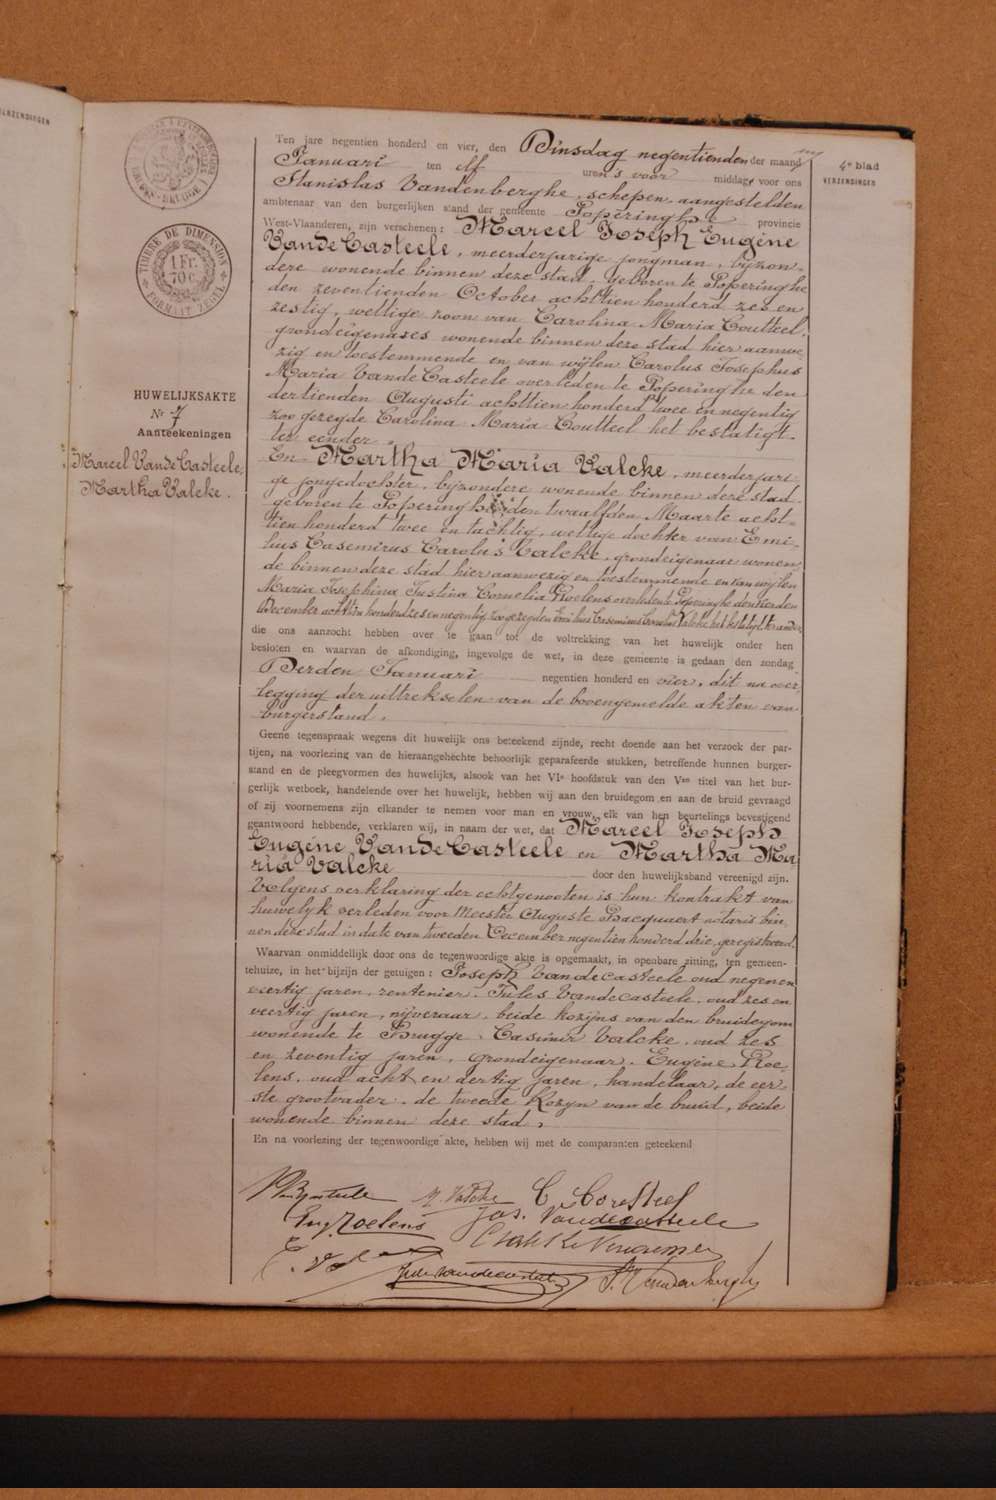 RZENDINGEN
TIMBRE DE DIMENSION
1 Fr.
70 c.
FORMAAT ZEGEL
HUWELIJKSAKTE
Nr 7
Aanteekeningen
Marcel VandeCasteele,
Martha Valcke.
4e blad
VERZENDINGEN
Ten jare negentien honderd en vier, den Dinsdag negentienden der maand
Januari ten elf uren 's voor middags voor ons
Stanislas Vandenberghe, schepen, aangestelden
ambtenaar van den burgerlijken stand der gemeente Poperinghe provincie
West-Vlaanderen, zijn verschenen: Marcel Joseph Eugène
VandeCasteele, meerderjarige jongman, bijzon-
dere wonende binnen deze stad, geboren te Poperinghe
den zeventienden October achttien honderd zes en
zestig, wettige zoon van Carolina Maria Coutteel,
grondeigenares wonende binnen deze stad hier aanwe-
zig en toestemmende en van wijlen Carolus Josephus
Maria VandeCasteele overleden te Poperinghe den
dertienden Augusti achttien honderd twee en negentig
zoo gezegde Carolina Maria Coutteel het bestatigt
ter eender.
En Martha Maria Valcke, meerderjari-
ge jongedochter, bijzondere wonende binnen deze stad
geboren te Poperinghe den twaalfden Maarte acht-
tien honderd twee en tachtig, wettige dochter van Emi-
lius Casemirus Carolus Valcke, grondeigenaar wonen-
de binnen deze stad hier aanwezig en toestemmende en van wijlen
Maria Josephina Justina Cornelia Roelens overleden te Poperinghe den vierden
December achttien honderd zes en negentig zoo gezegden Emilius Casemirus Carolus Valcke het bestatigt ter ander,
die ons aanzocht hebben over te gaan tot de voltrekking van het huwelijk onder hen
besloten en waarvan de afkondiging, ingevolge de wet, in deze gemeente is gedaan den zondag
Derden Januari negentien honderd en vier, dit na over-
legging der uittrekselen van de bovengemelde akten van
burgerstand.
Geene tegenspraak wegens dit huwelijk ons beteekend zijnde, recht doende aan het verzoek der par-
tijen, na voorlezing van de hieraangehechte behoorlijk geparafeerde stukken, betreffende hunnen burger-
stand en de pleegvormen des huwelijks, alsook van het VIe hoofdstuk van den Ven titel van het bur-
gerlijk wetboek, handelende over het huwelijk, hebben wij aan den bruidegom en aan de bruid gevraagd
of zij voornemens zijn elkander te nemen voor man en vrouw, elk van hen beurtelings bevestigend
geantwoord hebbende, verklaren wij, in naam der wet, dat Marcel Joseph
Eugène VandeCasteele en Martha Ma-
ria Valcke door den huwelijksband vereenigd zijn.
Volgens verklaring der echtgenooten is hun kontrakt van
huwelijk verleden voor Meester Auguste Bacquaert notaris bin-
nen deze stad in date van tweeden December negentien honderd drie, geregistreerd.
Waarvan onmiddelijk door ons de tegenwoordige akte is opgemaakt, in openbare zitting, ten gemeen-
tehuize, in het bijzijn der getuigen: Joseph Vandecasteele oud negen en
veertig jaren, rentenier, Jules Vandecasteele, oud zes en
veertig jaren, nijveraar, beide kozijns van den bruidegom
wonende te Brugge, Casimir Valcke, oud zes
en zeventig jaren, grondeigenaar, Eugène Roe-
lens, oud acht en dertig jaren, handelaar, de eer-
ste grootvader, de tweede kozyn van de bruid, beide
wonende binnen deze stad,
En na voorlezing der tegenwoordige akte, hebben wij met de comparanten geteekend
M. Valcke
Eug. Roelens
Jos. Vandecasteele
Jules Vandecasteele
S. Vandenberghe